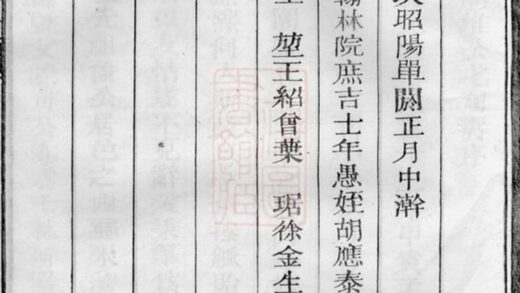 昭陽單閼正月中澣
翰林院庶吉士年愚姪胡應泰
堃王紹曾葉 琚徐金生